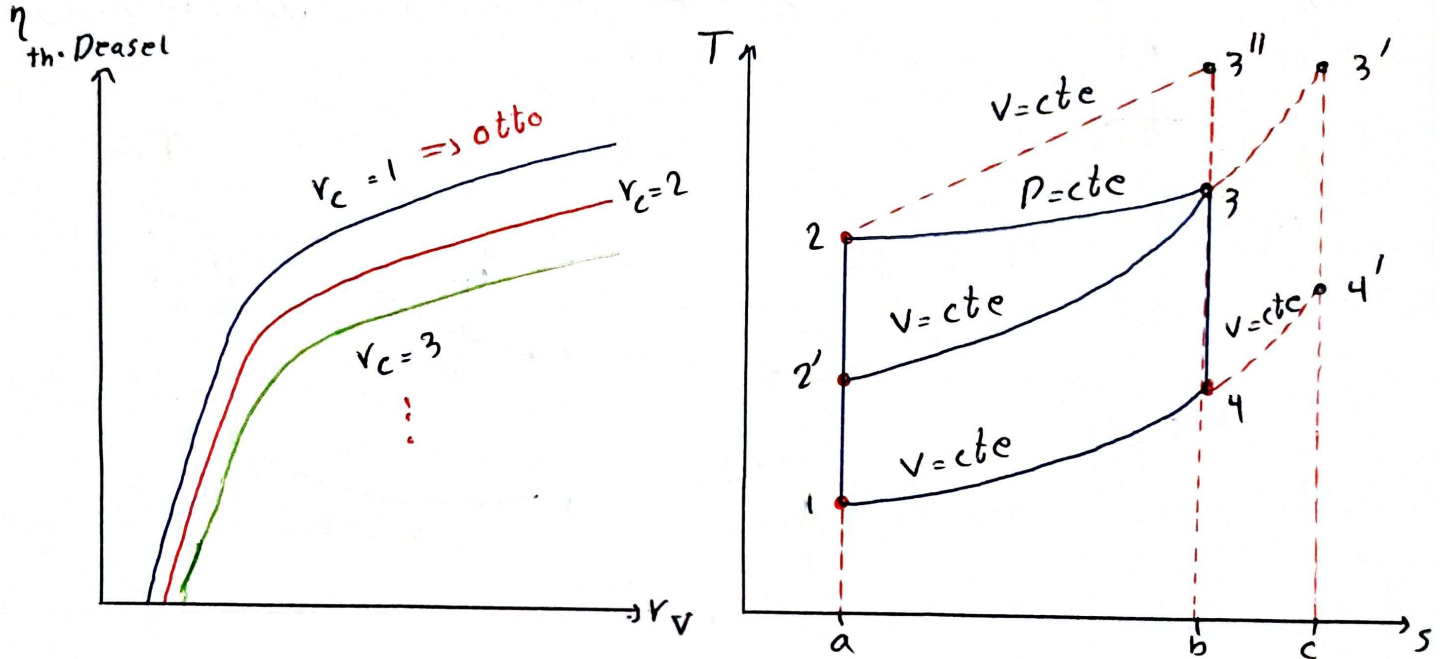 η th. Deasel
r_c = 1 => otto
r_c = 2
r_c = 3
r_v
T
3''
3'
V = cte
P = cte
2
3
V = cte
V = cte
4'
2'
4
V = cte
1
a
b
c
s